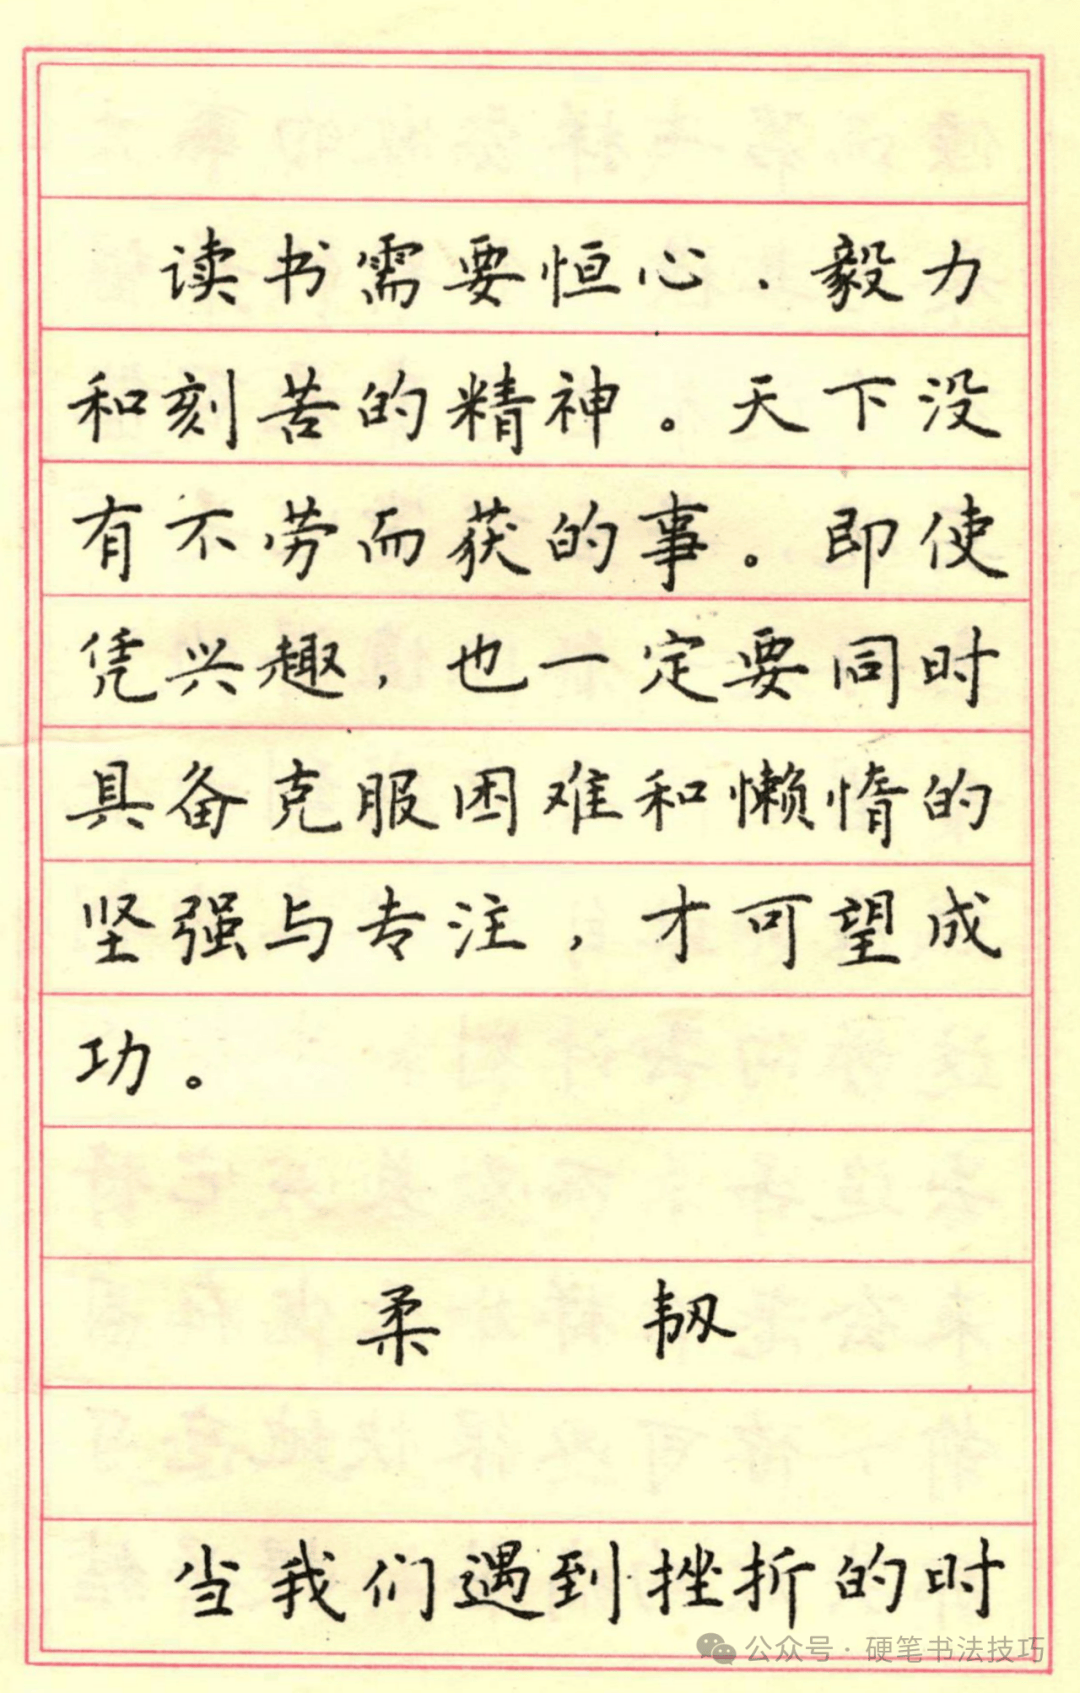 读书需要恒心、毅力
和刻苦的精神。天下没
有不劳而获的事。即使
凭兴趣，也一定要同时
具备克服困难和懒惰的
坚强与专注，才可望成
功。
柔 韧
当我们遇到挫折的时
公众号·硬笔书法技巧